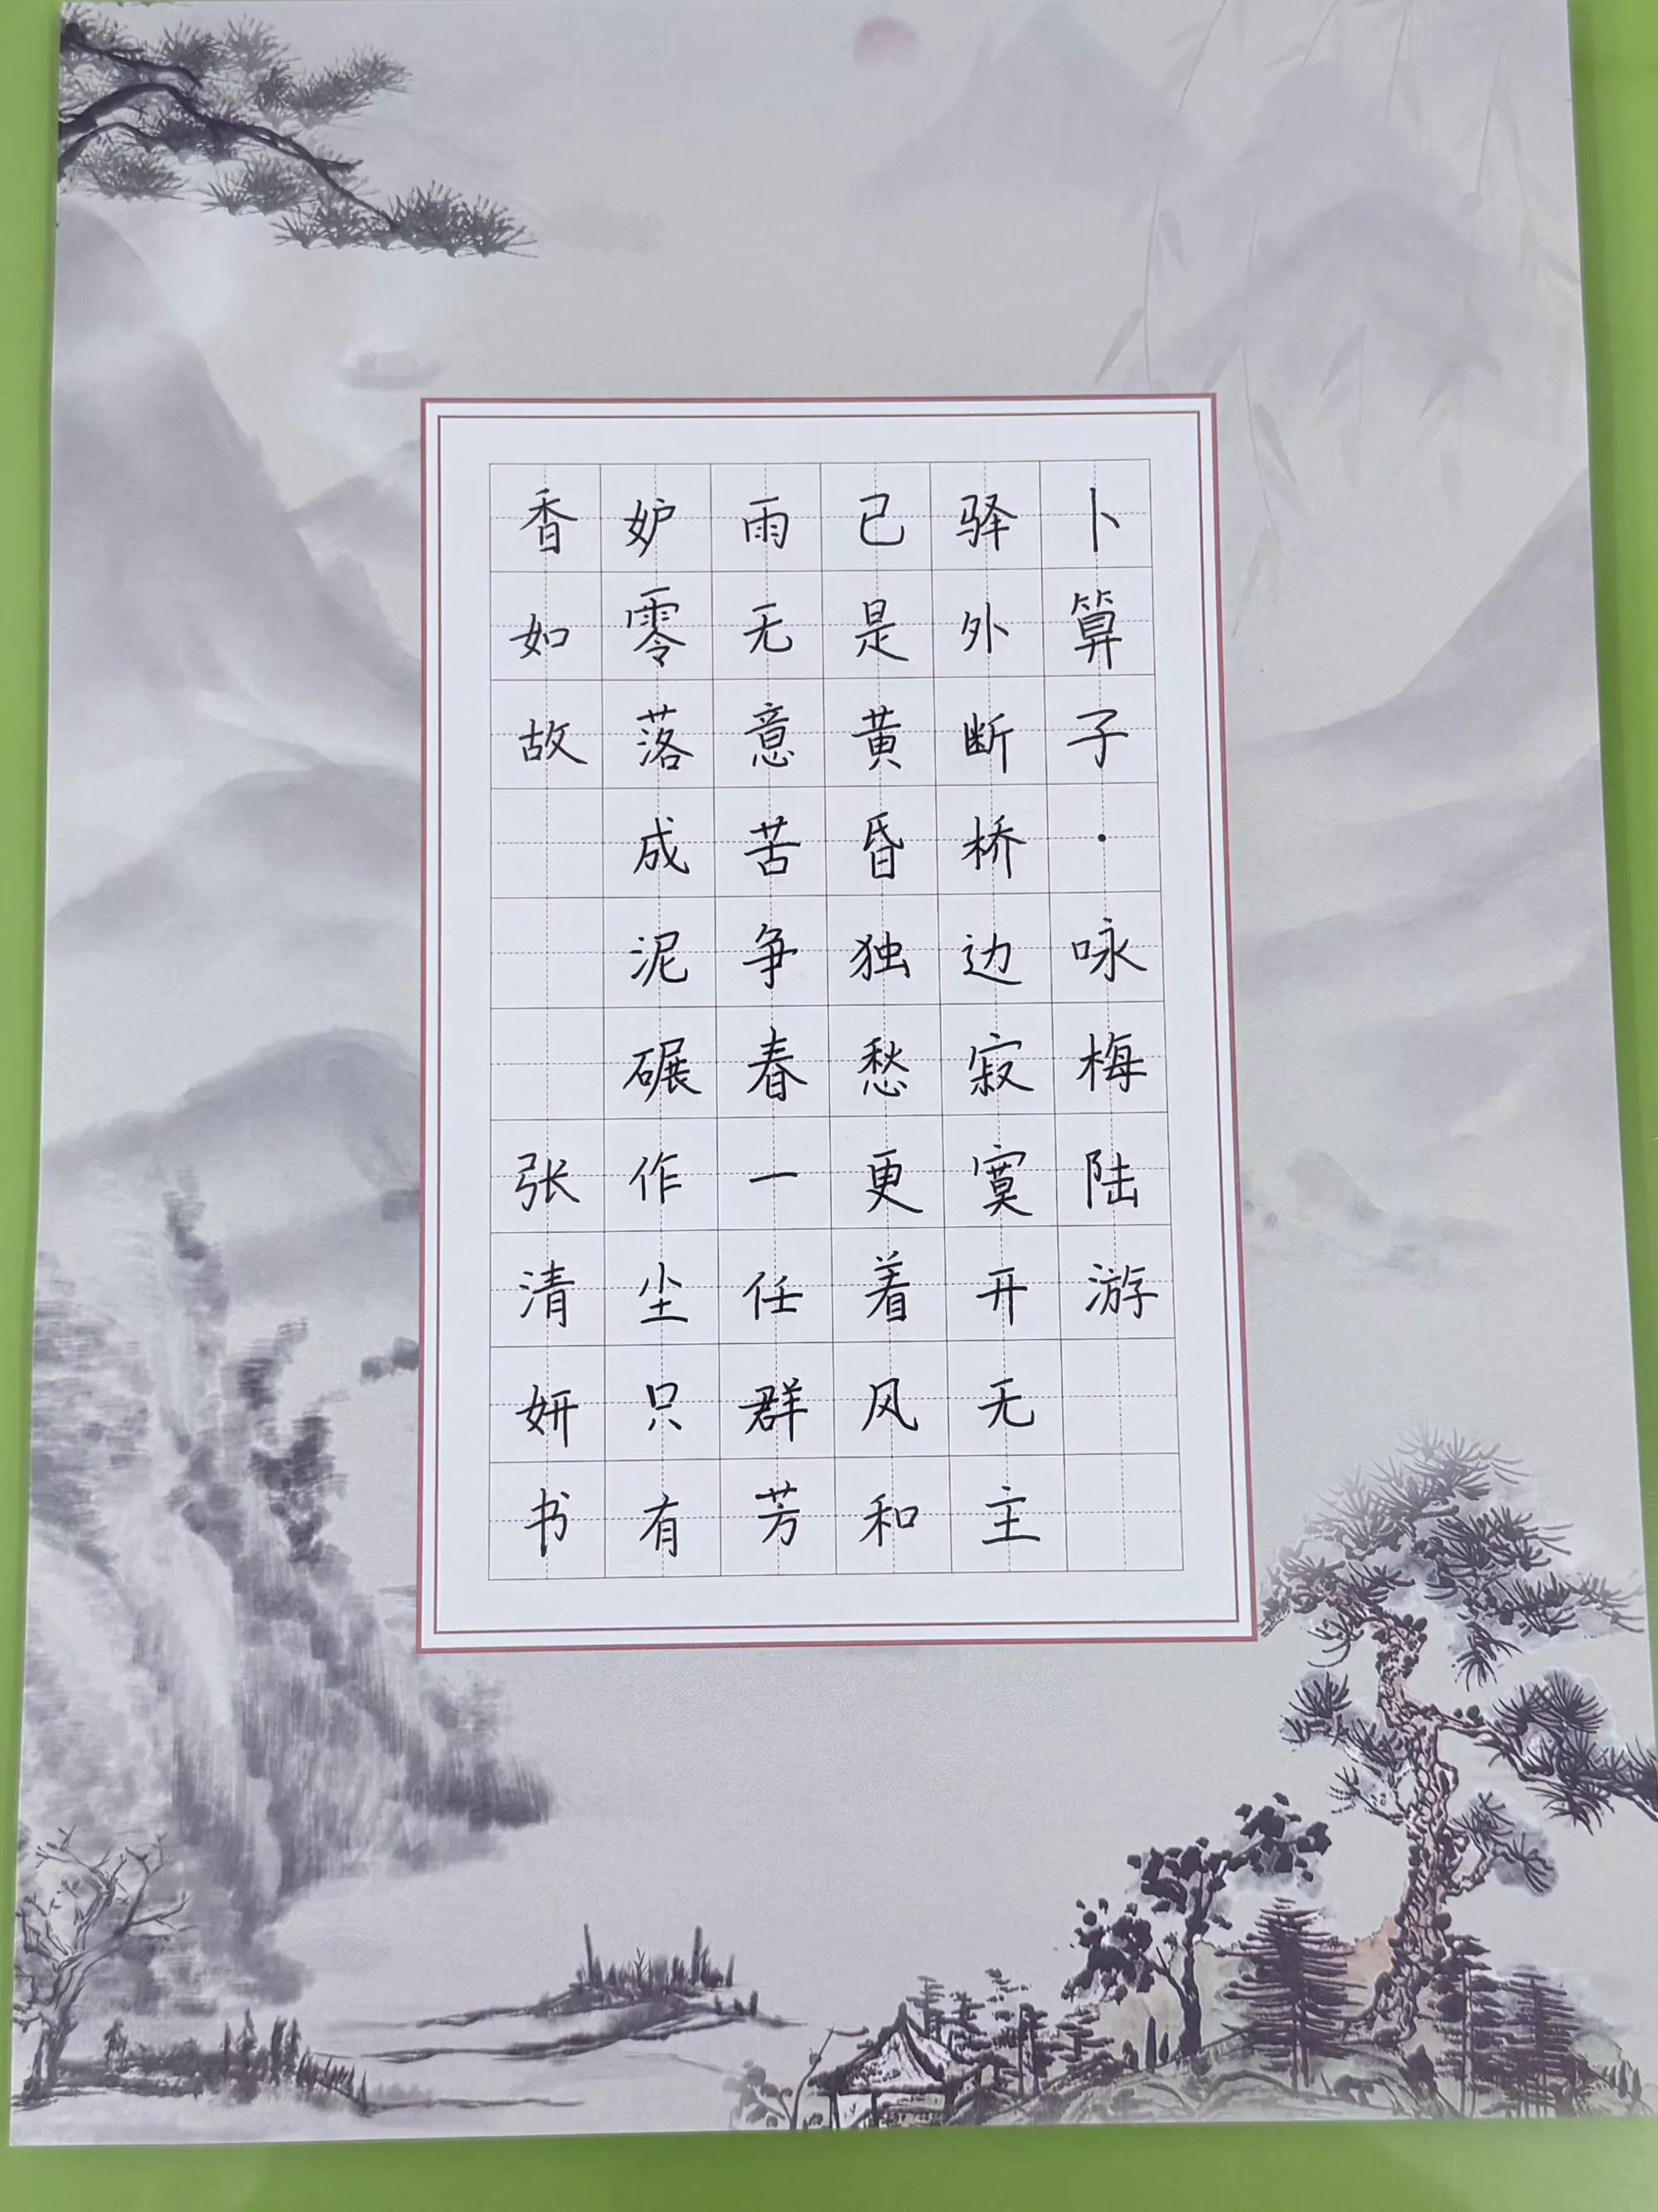 卜算子·咏梅陆游
驿外断桥边寂寞开无主
已是黄昏独愁更着风和
雨无意苦争春一任群芳
妒零落成泥碾作尘只有
香如故 张清妍书